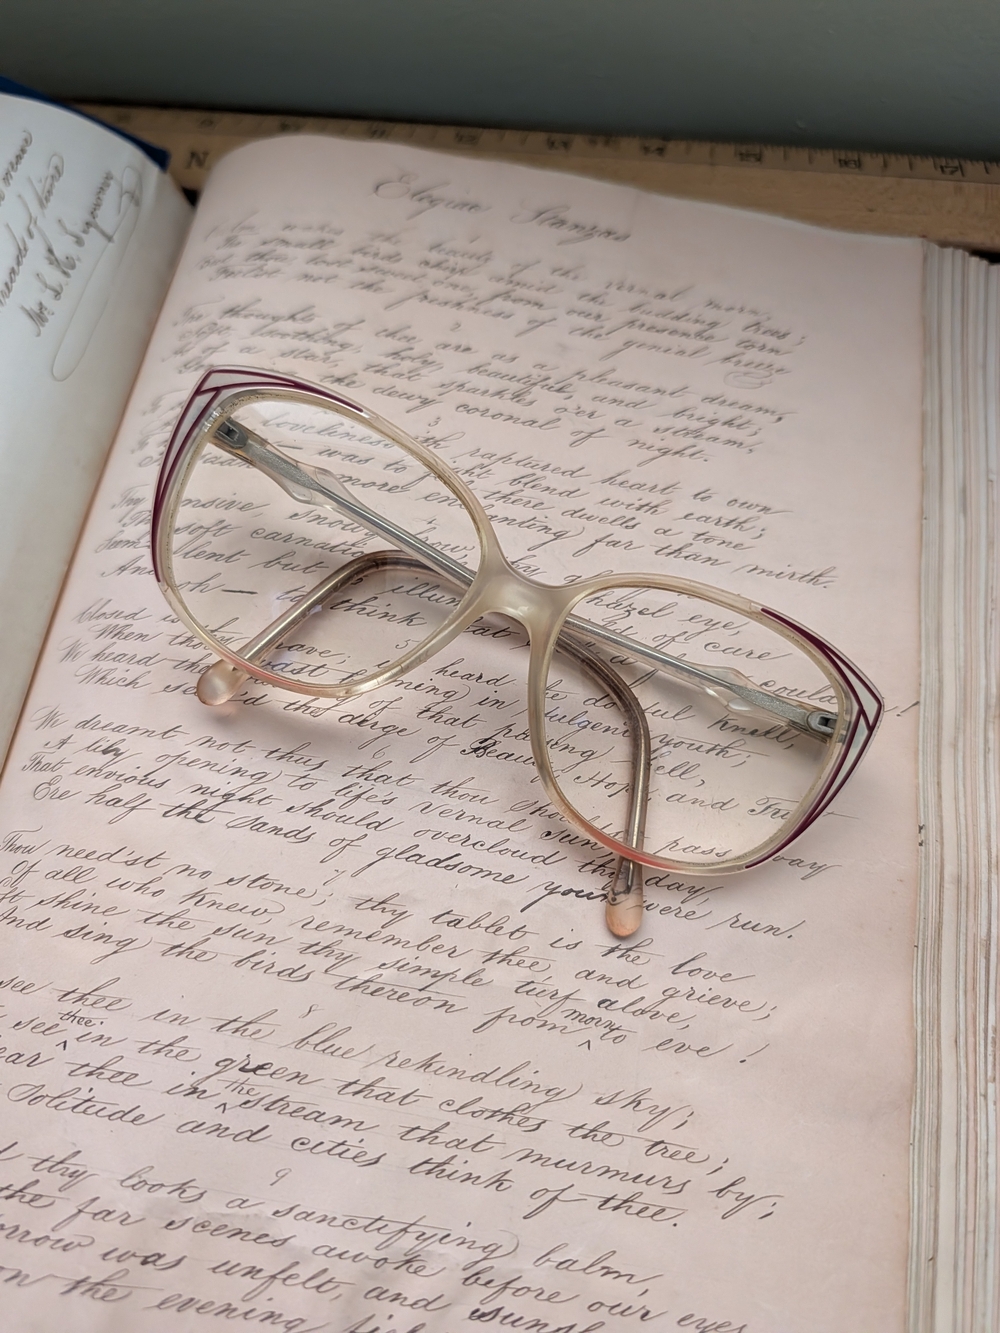 means
threads of
Mr S. H.
Elegiac Stanzas
the beauty of the vernal morn,
The small birds chirp amid the budding trees;
that last sweet one, from our presence torn
not the freshness of the genial breeze
2
thoughts of thee, are as a pleasant dream,
Soft, soothing, holy, beautiful, and bright;
a star, that sparkles o'er a stream,
the dewy coronal of night.
3
loveliness with raptured heart to own
was to blend with earth;
there dwells a tone
more enchanting far than mirth.
4
Thy snowy brow, thy hazel eye,
soft carnation of cure
but illum could
And oh — to think that
5
Closed is grave; heard the doleful knell,
When thou in indulgent youth;
We heard the of that passing bell,
Which the dirge of Beauty, Hope, and
6
We dreamt not thus that thou should'st pass away
A lily opening to life's vernal sun
That envious night should overcloud thy day,
Ere half the sands of gladsome youth were run.
7
Thou need'st no stone; thy tablet is the love
Of all who knew, remember thee, and grieve;
shine the sun thy simple turf above,
And sing the birds thereon from morn to eve!
8
see thee in the blue rekindling sky;
see thee in the green that clothes the tree;
thee in the stream that murmurs by;
Solitude and cities think of thee.
9
thy looks a sanctifying balm,
the far scenes awoke before our eyes
was unfelt, and
on the evening